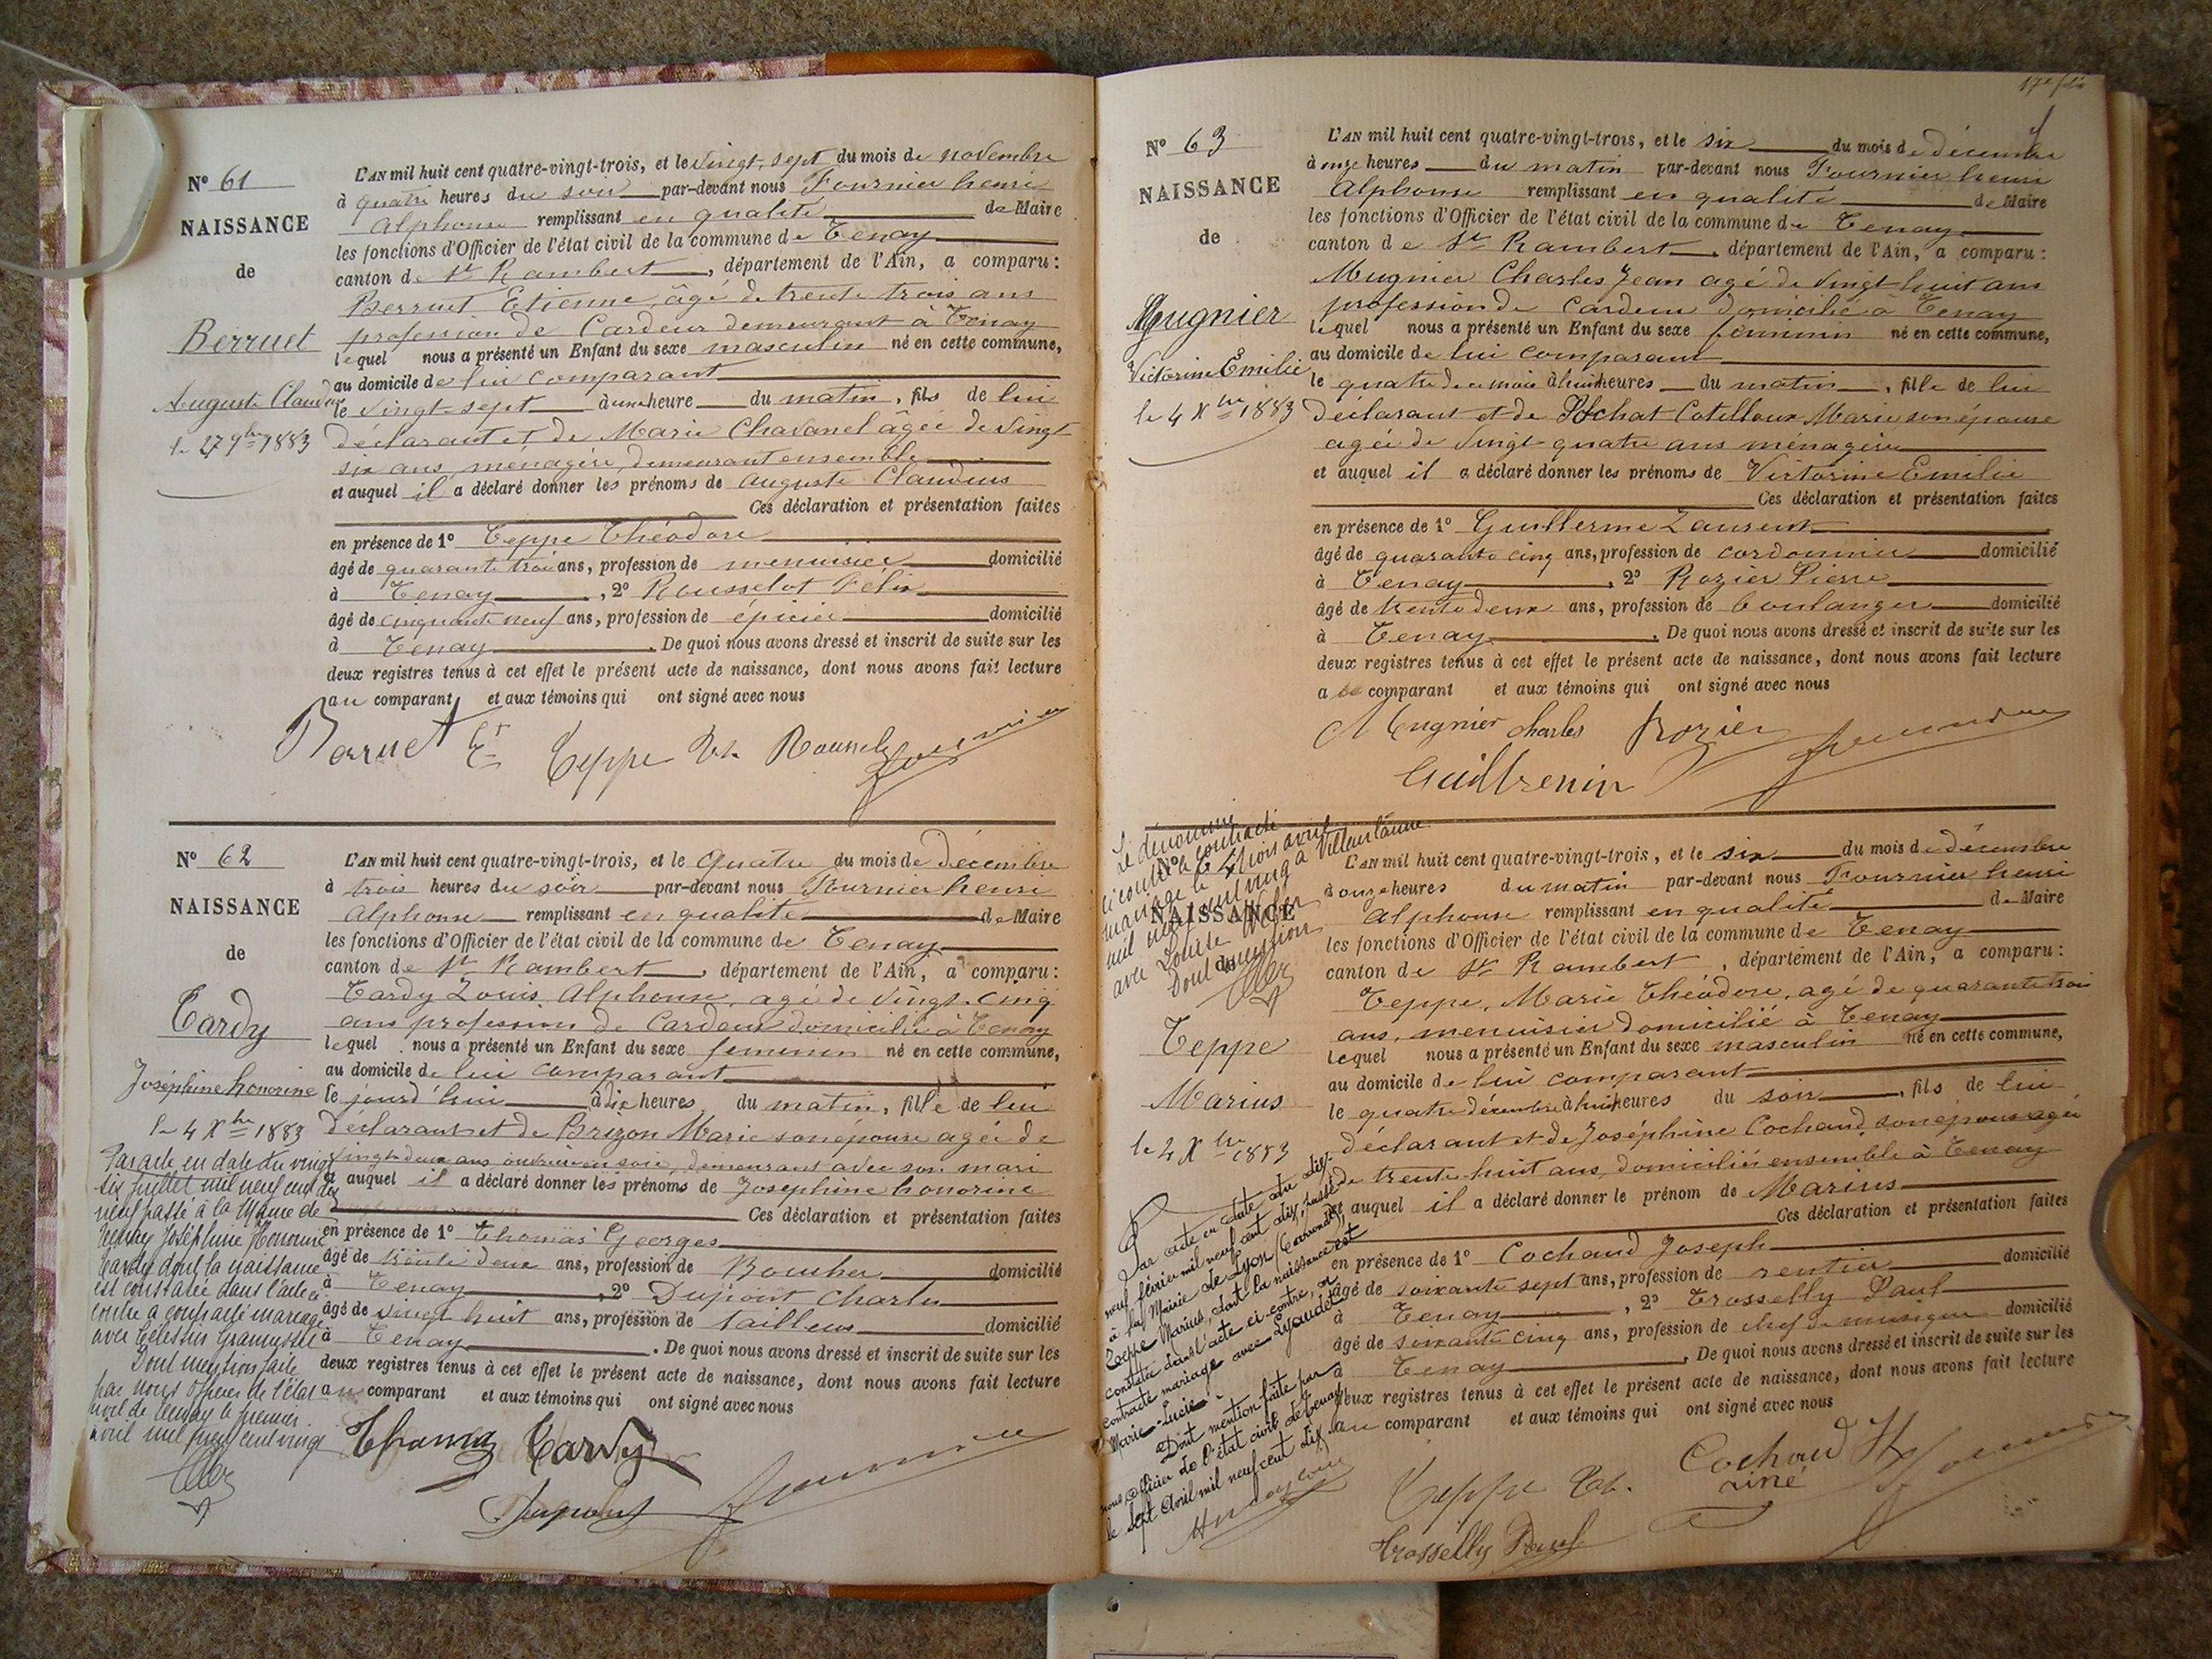 Nº 61
NAISSANCE
de
Berruet
Auguste Claudius
le 27 9bre 1883
L'AN mil huit cent quatre-vingt-trois, et le vingt-sept du mois de novembre
à quatre heures du soir par-devant nous Fournier henri
Alphonse remplissant en qualité de Maire
les fonctions d'Officier de l'état civil de la commune de Tenay
canton de St Rambert, département de l'Ain, a comparu:
Berruet Etienne, âgé de trente trois ans
profession de Cardeur demeurant à Tenay
lequel nous a présenté un Enfant du sexe masculin né en cette commune,
au domicile de lui comparant
le vingt-sept à une heure du matin, fils de lui
déclarant et de Marie Chavanel âgée de vingt
six ans, ménagère, demeurant ensemble
et auquel il a déclaré donner les prénoms de Auguste Claudius
Ces déclaration et présentation faites
en présence de 1º Teppe Théodore
âgé de quarante trois ans, profession de menuisier domicilié
à Tenay, 2º Rousselot Félix
âgé de cinquante neuf ans, profession de épicier domicilié
à Tenay. De quoi nous avons dressé et inscrit de suite sur les
deux registres tenus à cet effet le présent acte de naissance, dont nous avons fait lecture
au comparant et aux témoins qui ont signé avec nous
Baruet Et Teppe Th.
Nº 62
NAISSANCE
de
Tardy
Joséphine honorine
le 4 Xbre 1883
L'AN mil huit cent quatre-vingt-trois, et le quatre du mois de décembre
à trois heures du soir par-devant nous Fournier henri
Alphonse remplissant en qualité de Maire
les fonctions d'Officier de l'état civil de la commune de Tenay
canton de St Rambert, département de l'Ain, a comparu:
Tardy Louis Alphonse, agé de vingt-cinq
ans profession de Cardeur domicilié à Tenay
lequel nous a présenté un Enfant du sexe feminin né en cette commune,
au domicile de lui comparant
le jourd'hui à dix heures du matin, fille de lui
déclarant et de Brizon Marie son épouse agée de
vingt-deux ans ouvrière en soie, demeurant avec son mari
et auquel il a déclaré donner les prénoms de Joséphine honorine
Ces déclaration et présentation faites
en présence de 1º Thomas Georges
âgé de trente deux ans, profession de Boucher domicilié
à Tenay, 2º Dupont Charles
âgé de vingt huit ans, profession de tailleur domicilié
à Tenay. De quoi nous avons dressé et inscrit de suite sur les
deux registres tenus à cet effet le présent acte de naissance, dont nous avons fait lecture
au comparant et aux témoins qui ont signé avec nous
Par acte en date du vingt
six juillet mil neuf cent dix
neuf passé à la Mairie de
Tenay Joséphine Honorine
Tardy dont la naissance
est constatée dans l'acte ci
contre a contracté mariage
avec Celestin
Dont mention faite
par nous officier de l'état
civil de Tenay le premier
avril mil neuf cent vingt
Thomas Tardy
Dupont
Nº 63
NAISSANCE
de
Mugnier
Victorine Emilie
le 4 Xbre 1883
L'AN mil huit cent quatre-vingt-trois, et le six du mois de décembre
à onze heures du matin par-devant nous Fournier henri
Alphonse remplissant en qualité de Maire
les fonctions d'Officier de l'état civil de la commune de Tenay
canton de St Rambert, département de l'Ain, a comparu:
Mugnier Charles Jean agé de vingt huit ans
profession de Cardeur domicilié à Tenay
lequel nous a présenté un Enfant du sexe féminin né en cette commune,
au domicile de lui comparant
le quatre de ce mois à huit heures du matin, fille de lui
déclarant et de Cotilloux Marie son épouse
agée de vingt-quatre ans ménagère
et auquel il a déclaré donner les prénoms de Victorine Emilie
Ces déclaration et présentation faites
en présence de 1º Guillerme Laurent
âgé de quarante cinq ans, profession de cordonnier domicilié
à Tenay, 2º Rozier Pierre
âgé de trente deux ans, profession de boulanger domicilié
à Tenay. De quoi nous avons dressé et inscrit de suite sur les
deux registres tenus à cet effet le présent acte de naissance, dont nous avons fait lecture
a comparant et aux témoins qui ont signé avec nous
Mugnier charles Rozier
Le dénommé
ci contre a contracté
mariage le trois avril
mil neuf cent vingt à Villeurbanne
avec Louise
Dont mention
Nº 64
NAISSANCE
de
Teppe
Marius
le 4 Xbre 1883
L'AN mil huit cent quatre-vingt-trois, et le six du mois de décembre
à onze heures du matin par-devant nous Fournier henri
Alphonse remplissant en qualité de Maire
les fonctions d'Officier de l'état civil de la commune de Tenay
canton de St Rambert, département de l'Ain, a comparu:
Teppe, Marie Théodore, agé de quarante trois
ans, menuisier domicilié à Tenay
lequel nous a présenté un Enfant du sexe masculin né en cette commune,
au domicile de lui comparant
le quatre décembre à huit heures du soir, fils de lui
déclarant et de Joséphine Cochand, son épouse agée
de trente-huit ans, domiciliés ensemble à Tenay
et auquel il a déclaré donner le prénom de Marius
Ces déclaration et présentation faites
en présence de 1º Cochand Joseph
âgé de soixante sept ans, profession de rentier domicilié
à Tenay, 2º Trosselly Paul
âgé de soixante cinq ans, profession de chef de musique domicilié
à Tenay. De quoi nous avons dressé et inscrit de suite sur les
deux registres tenus à cet effet le présent acte de naissance, dont nous avons fait lecture
au comparant et aux témoins qui ont signé avec nous
Par acte en date du dix-
neuf février mil neuf cent dix, passé
à la Mairie de Lyon
Teppe Marius, dont la naissance est
constatée dans l'acte ci-contre, a
contracté mariage avec Gaudet
Marie-Lucie
Dont mention faite par
nous, Officier de l'état civil de Tenay,
le sept Avril mil neuf cent dix
Teppe Th. Cochand
ainé
Trosselly Paul